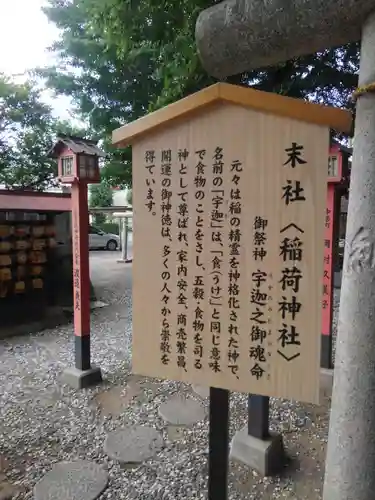 末社〈稲荷神社〉
御祭神 宇迦之御魂命
元々は稲の精霊を神格化された神で、
名前の「宇迦」は、「食（うけ）」と同じ意味
で食物のことをさし、五穀・食物を司る
神として尊ばれ、家内安全、商売繁昌、
開運の御神徳は、多くの人々から崇敬を
得ます。